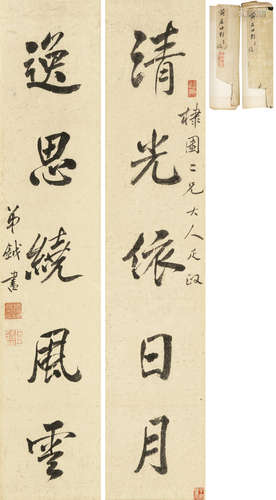 清光依日月
棣園二兄大人正政
逸思繞風雲
弟鉞書